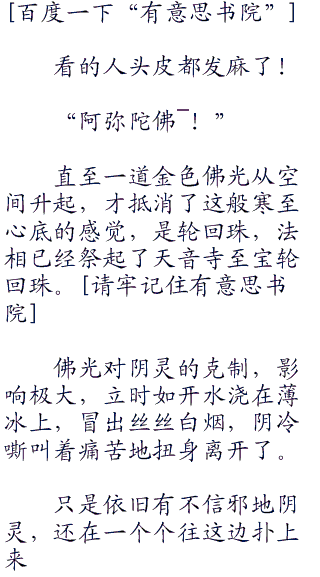 [百度一下“有意思书院”]
看的人头皮都发麻了！
“阿弥陀佛¯！”
直至一道金色佛光从空
间升起，才抵消了这般寒至
心底的感觉，是轮回珠，法
相已经祭起了天音寺至宝轮
回珠。[请牢记住有意思书
院]
佛光对阴灵的克制，影
响极大，立时如开水浇在薄
冰上，冒出丝丝白烟，阴冷
嘶叫着痛苦地扭身离开了。
只是依旧有不信邪地阴
灵，还在一个个往这边扑上
来